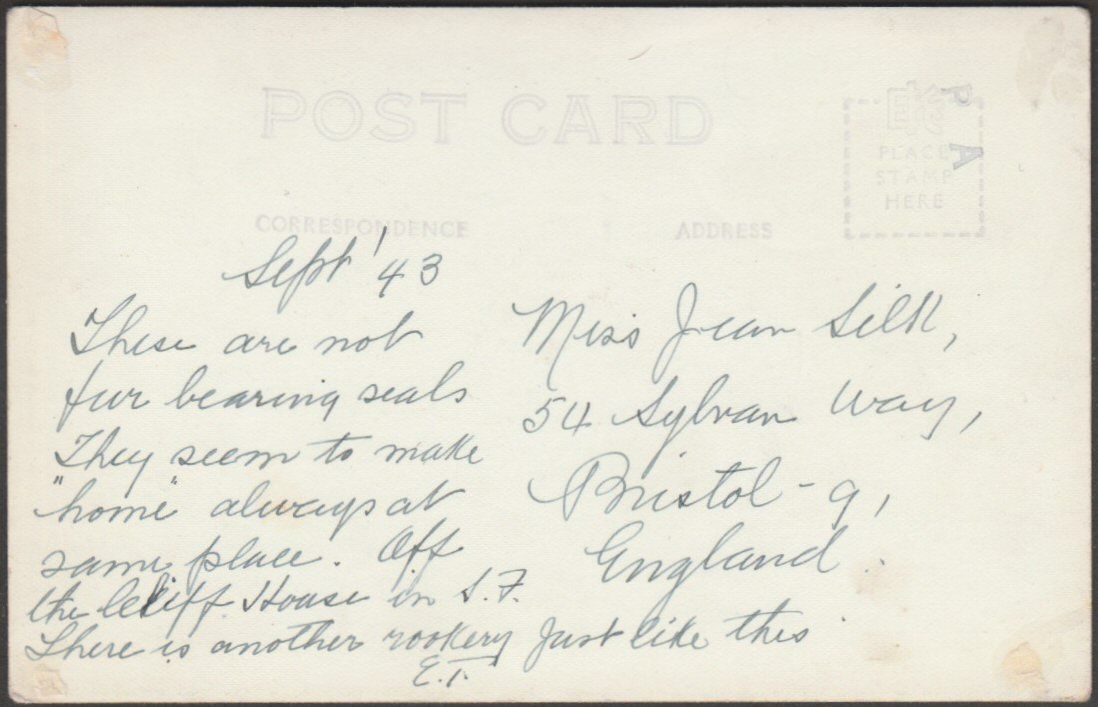 POST CARD
EKC
PLACE
STAMP
HERE
P A
CORRESPONDENCE
ADDRESS
Sept '43
These are not
fur bearing seals
They seem to make
"home" always at
same place. Off
the Cliff House in S.F.
There is another rookery just like this
E.T.
Miss Jean Silk,
54 Sylvan Way,
Bristol - 9,
England.